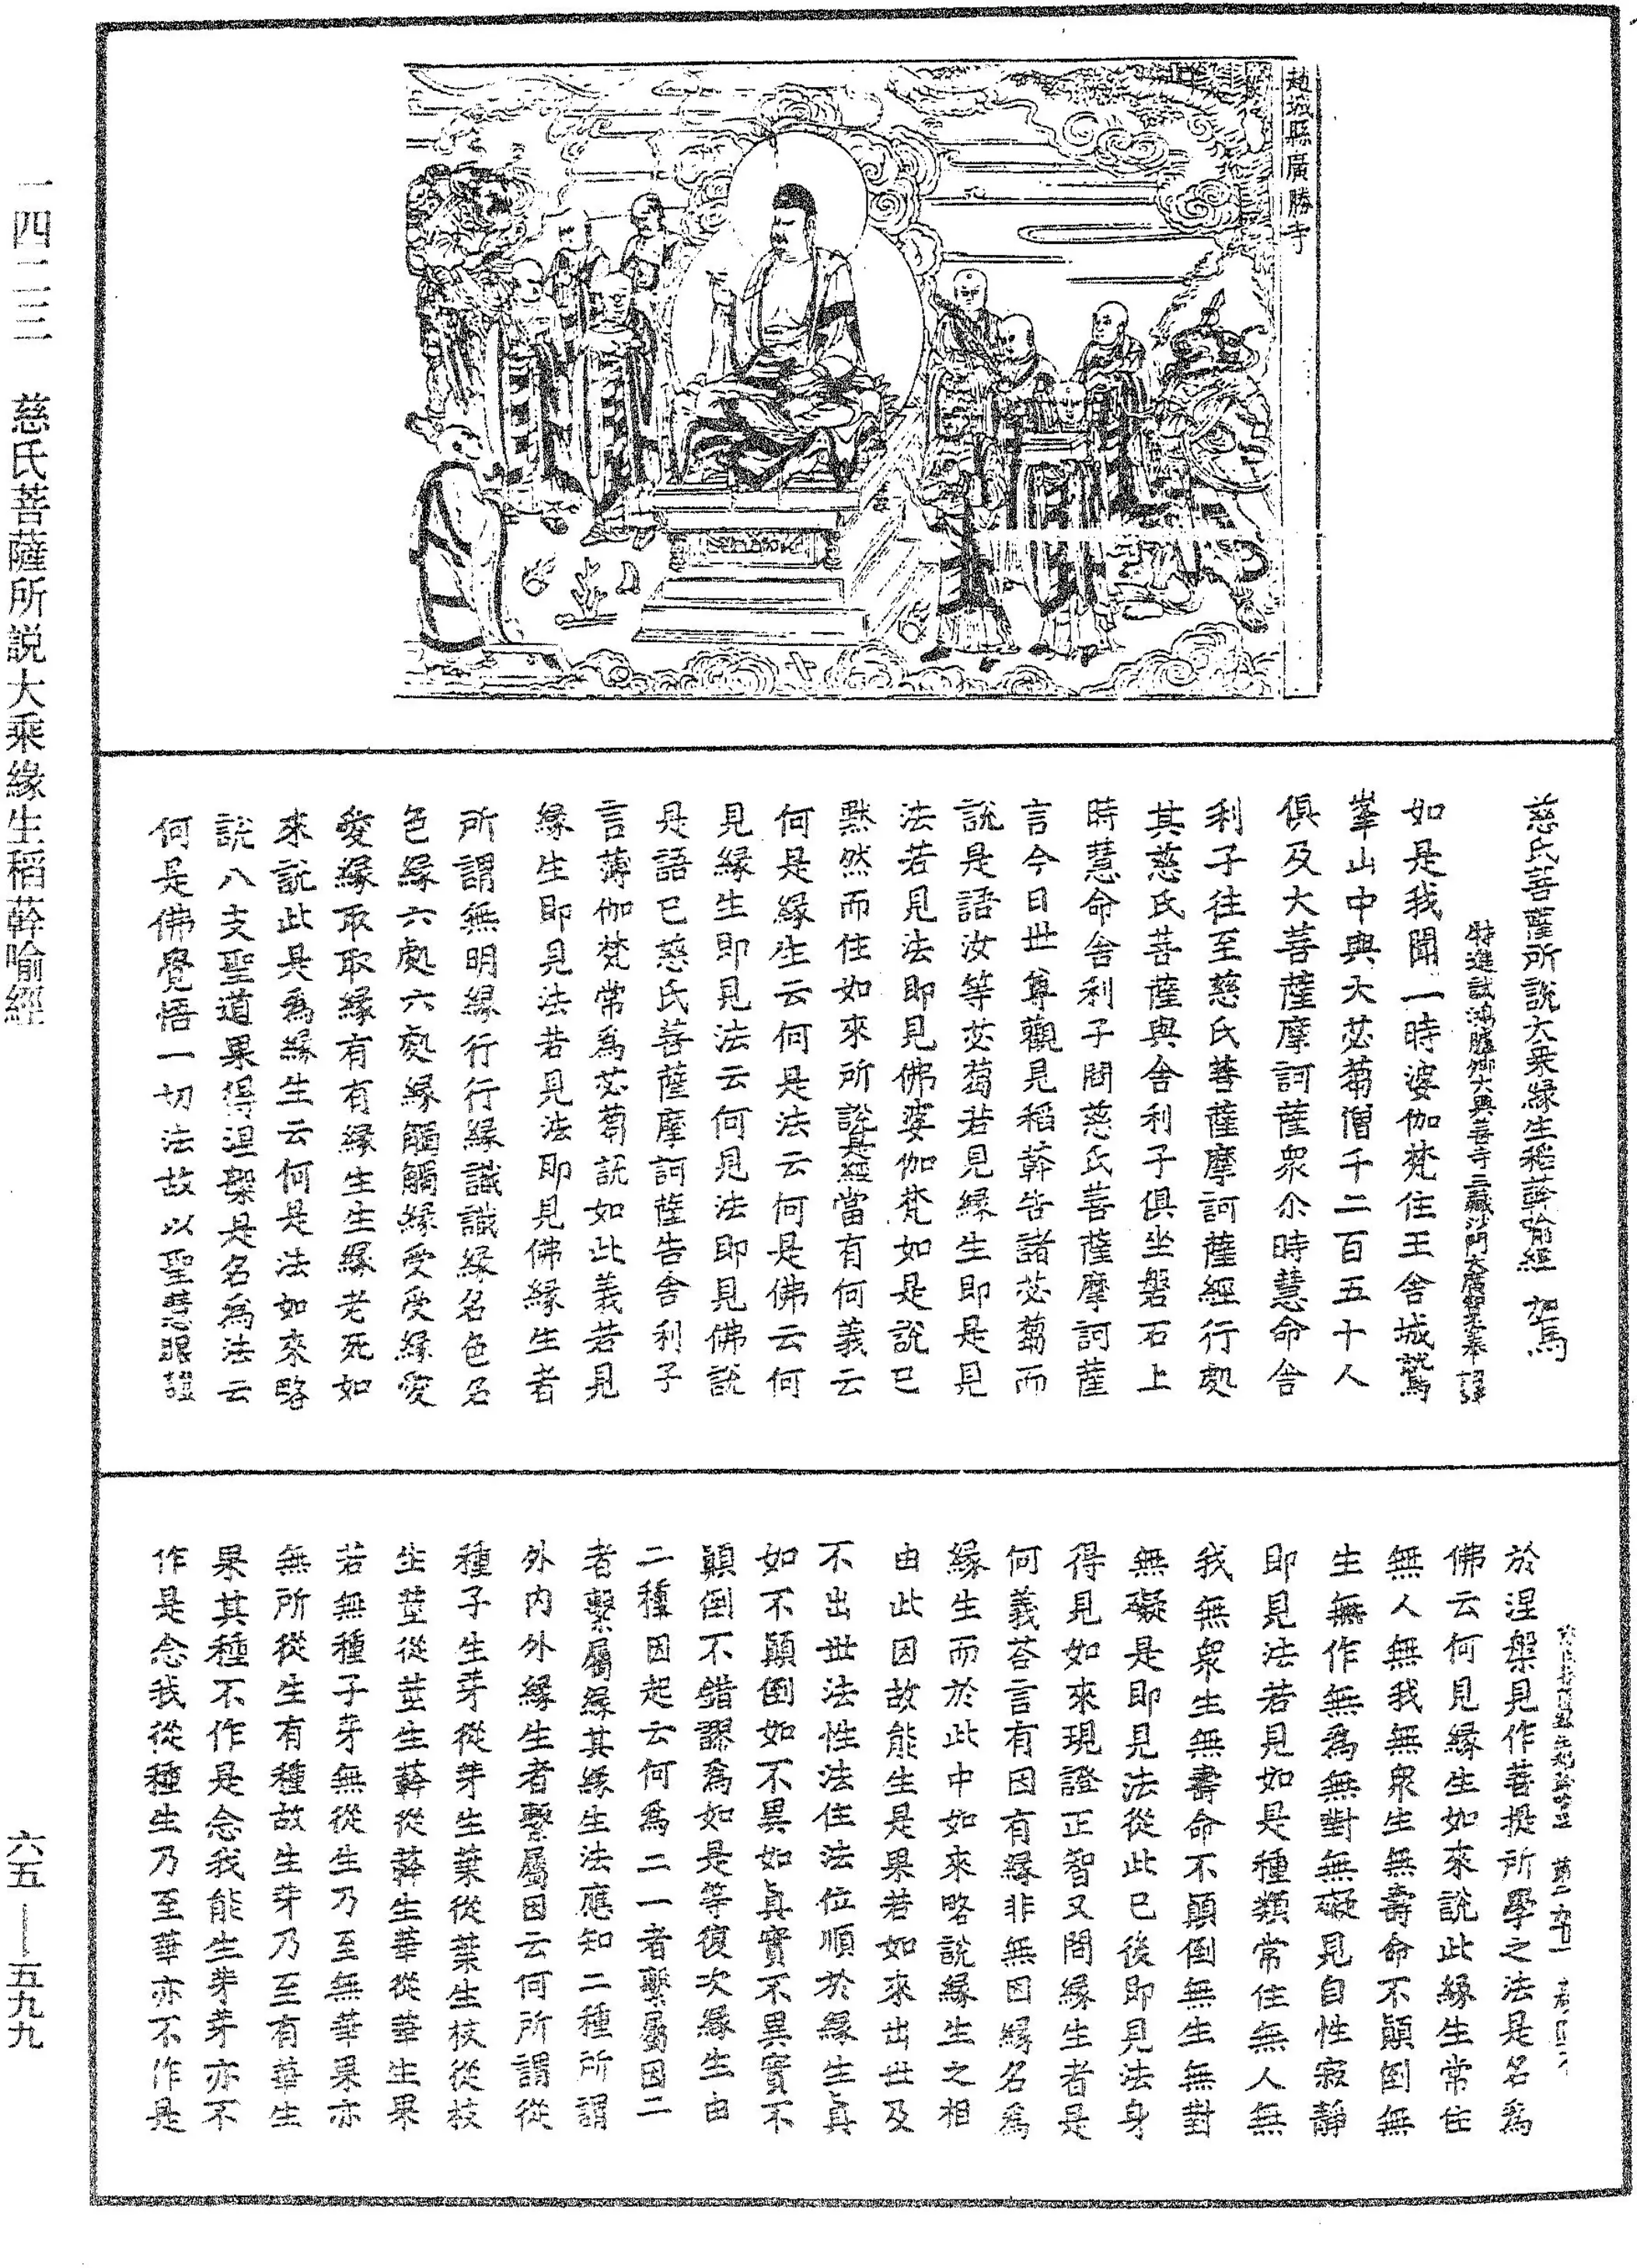 趙城縣廣勝寺
慈氏菩薩所說大乘緣生稻𦼮喻經 駕馬
特進試鴻臚卿大興善寺三藏沙門大廣智不空奉 詔譯
如是我聞一時婆伽梵住王舍城鷲
峯山中與大苾芻僧千二百五十人
俱及大菩薩摩訶薩眾尒時慧命舍
利子往至慈氏菩薩摩訶薩經行處
其慈氏菩薩與舍利子俱坐磐石上
時慧命舍利子問慈氏菩薩摩訶薩
言今日世尊觀見稻𦼮告諸苾芻而
說是語汝等苾芻若見緣生即是見
法若見法即見佛婆伽梵如是說已
默然而住如來所說是經當有何義云
何是緣生云何是法云何是佛云何
見緣生即見法云何見法即見佛說
是語已慈氏菩薩摩訶薩告舍利子
言薄伽梵常為苾芻說如此義若見
緣生即見法若見法即見佛緣生者
所謂無明緣行行緣識識緣名色名
色緣六處六處緣觸觸緣受受緣愛
愛緣取取緣有有緣生生緣老死如
來說此是為緣生云何是法如來略
說八支聖道果得涅槃是名為法云
何是佛覺悟一切法故以聖慧眼證
於涅槃見作菩提所學之法是名為
佛云何見緣生如來說此緣生常住
無人無我無眾生無壽命不顛倒無
生無作無為無對無礙見自性寂靜
即見法若見如是種類常住無人無
我無眾生無壽命不顛倒無生無對
無礙是即見法從此已後即見法身
得見如來現證正智又問緣生者是
何義荅言有因有緣非無因緣名為
緣生而於此中如來略說緣生之相
由此因故能生是果若如來出世及
不出世法性法住法位順於緣生真
如不顛倒如不異如真實不異實不
顛倒不錯謬為如是等復次緣生由
二種因起云何為二一者繫屬因二
者繫屬緣其緣生法應知二種所謂
外內外緣生者繫屬因云何所謂從
種子生芽從芽生葉從葉生枝從枝
生莖從莖生𦼮從𦼮生華從華生果
若無種子芽無從生乃至無華果亦
無所從生有種故生芽乃至有華生
果其種不作是念我能生芽芽亦不
作是念我從種生乃至華亦不作是
一四二三 慈氏菩薩所説大乘緣生稻𦼮喻經
六五——五九九